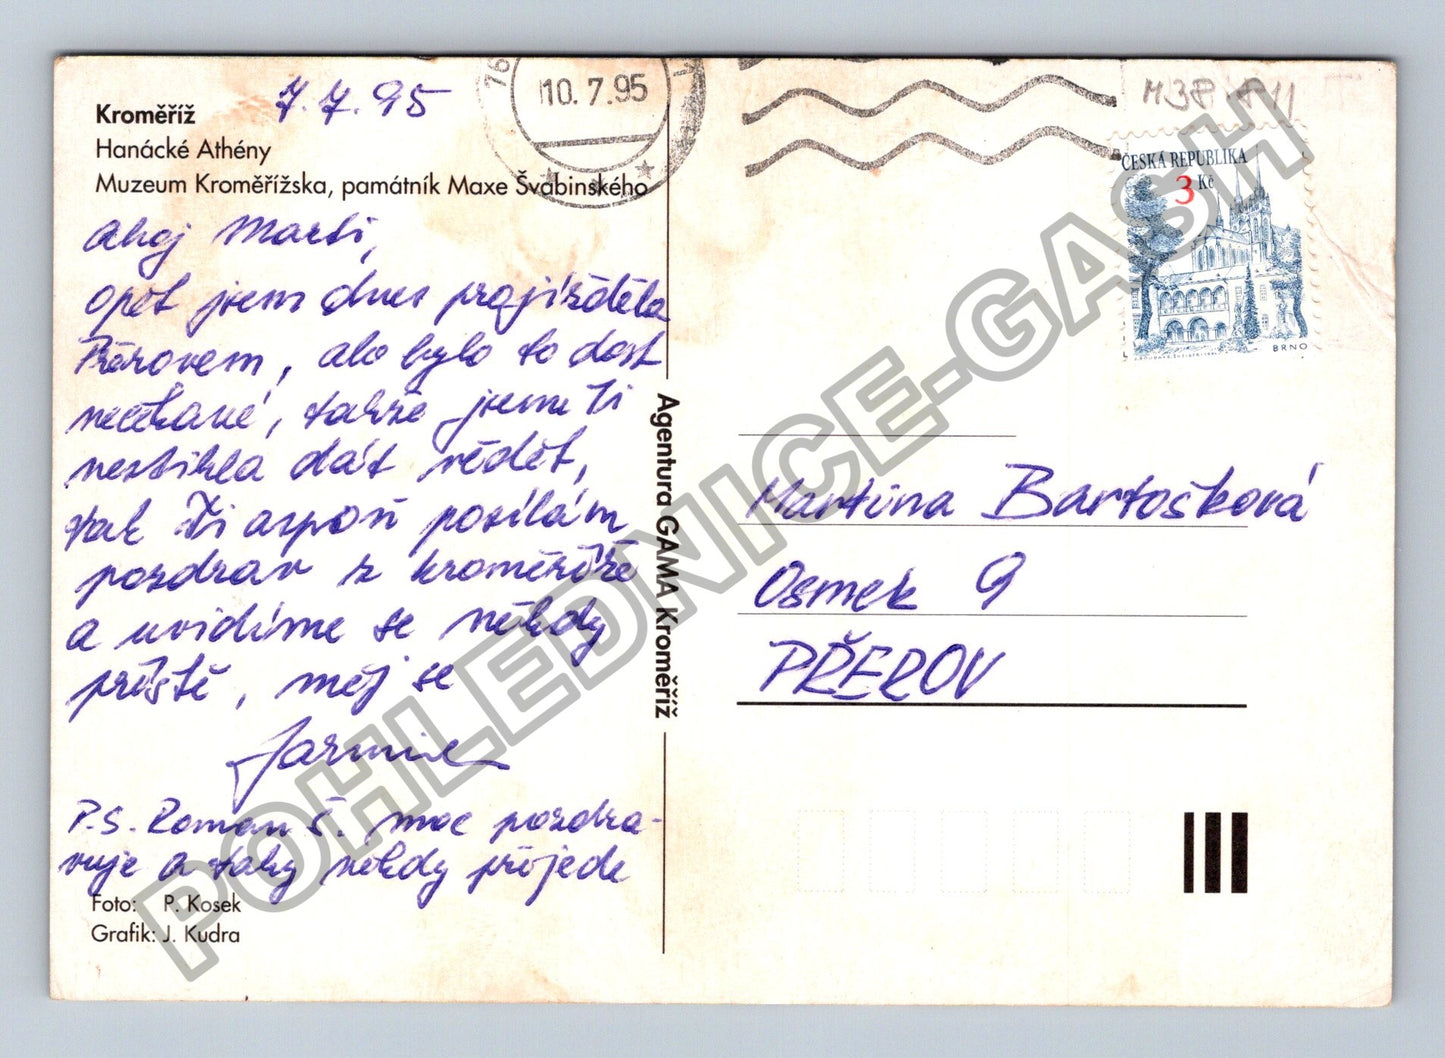 Kroměříž
7.7.95
Hanácké Athény
Muzeum Kroměřížska, památník Maxe Švabinského
Ahoj Marti,
opět jsem dnes projížděla
Přerovem, ale bylo to dost
nečekané, takže jsem Ti
nestihla dát vědět,
tak Ti aspoň posílám
pozdrav z Kroměříže
a uvidíme se někdy
příště, měj se
Jarmila
P.S. Roman Š. moc pozdra-
vuje a taky někdy přijede
Foto: P. Kosek
Grafik: J. Kudra
Agentura GAMA Kroměříž
76
10.7.95
M38 811
ČESKÁ REPUBLIKA
3 Kč
BRNO
Martina Bartošková
Osmek 9
PŘEROV
POHLEDNICE-GASH